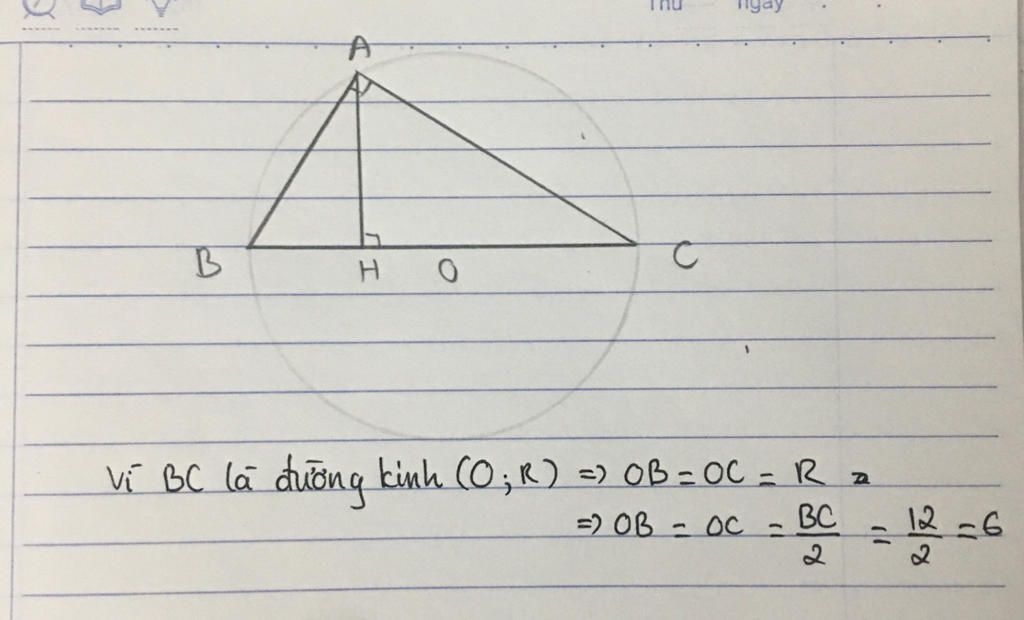 Thứ ngày . .
A
B H O C
Vì BC là đường kinh (O;R) => OB = OC = R =
=> OB = OC = BC/2 = 12/2 = 6